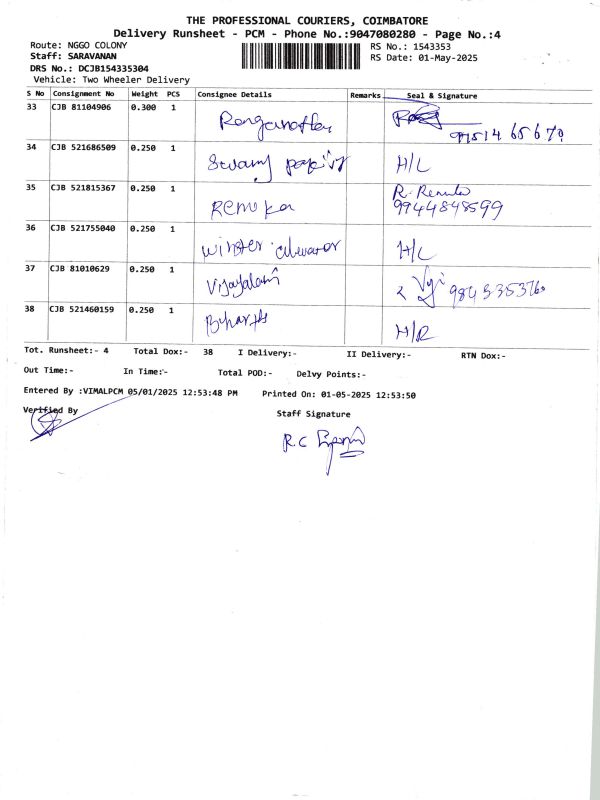 THE PROFESSIONAL COURIERS, COIMBATORE
Delivery Runsheet - PCM - Phone No.:9047080280 - Page No.:4
Route: NGGO COLONY RS No.: 1543353
Staff: SARAVANAN RS Date: 01-May-2025
DRS No.: DCJB154335304
Vehicle: Two Wheeler Delivery
S No Consignment No Weight PCS Consignee Details Remarks Seal & Signature
33 CJB 81104906 0.300 1
34 CJB 521686509 0.250 1 H/L
35 CJB 521815367 0.250 1 Renuka R. Renuka
9944848599
36 CJB 521755040 0.250 1 H/L
37 CJB 81010629 0.250 1
38 CJB 521460159 0.250 1 H/R
Tot. Runsheet:- 4 Total Dox:- 38 I Delivery:- II Delivery:- RTN Dox:-
Out Time:- In Time:- Total POD:- Delvy Points:-
Entered By :VIMALPCM 05/01/2025 12:53:48 PM Printed On: 01-05-2025 12:53:50
Verified By
Staff Signature
R.C